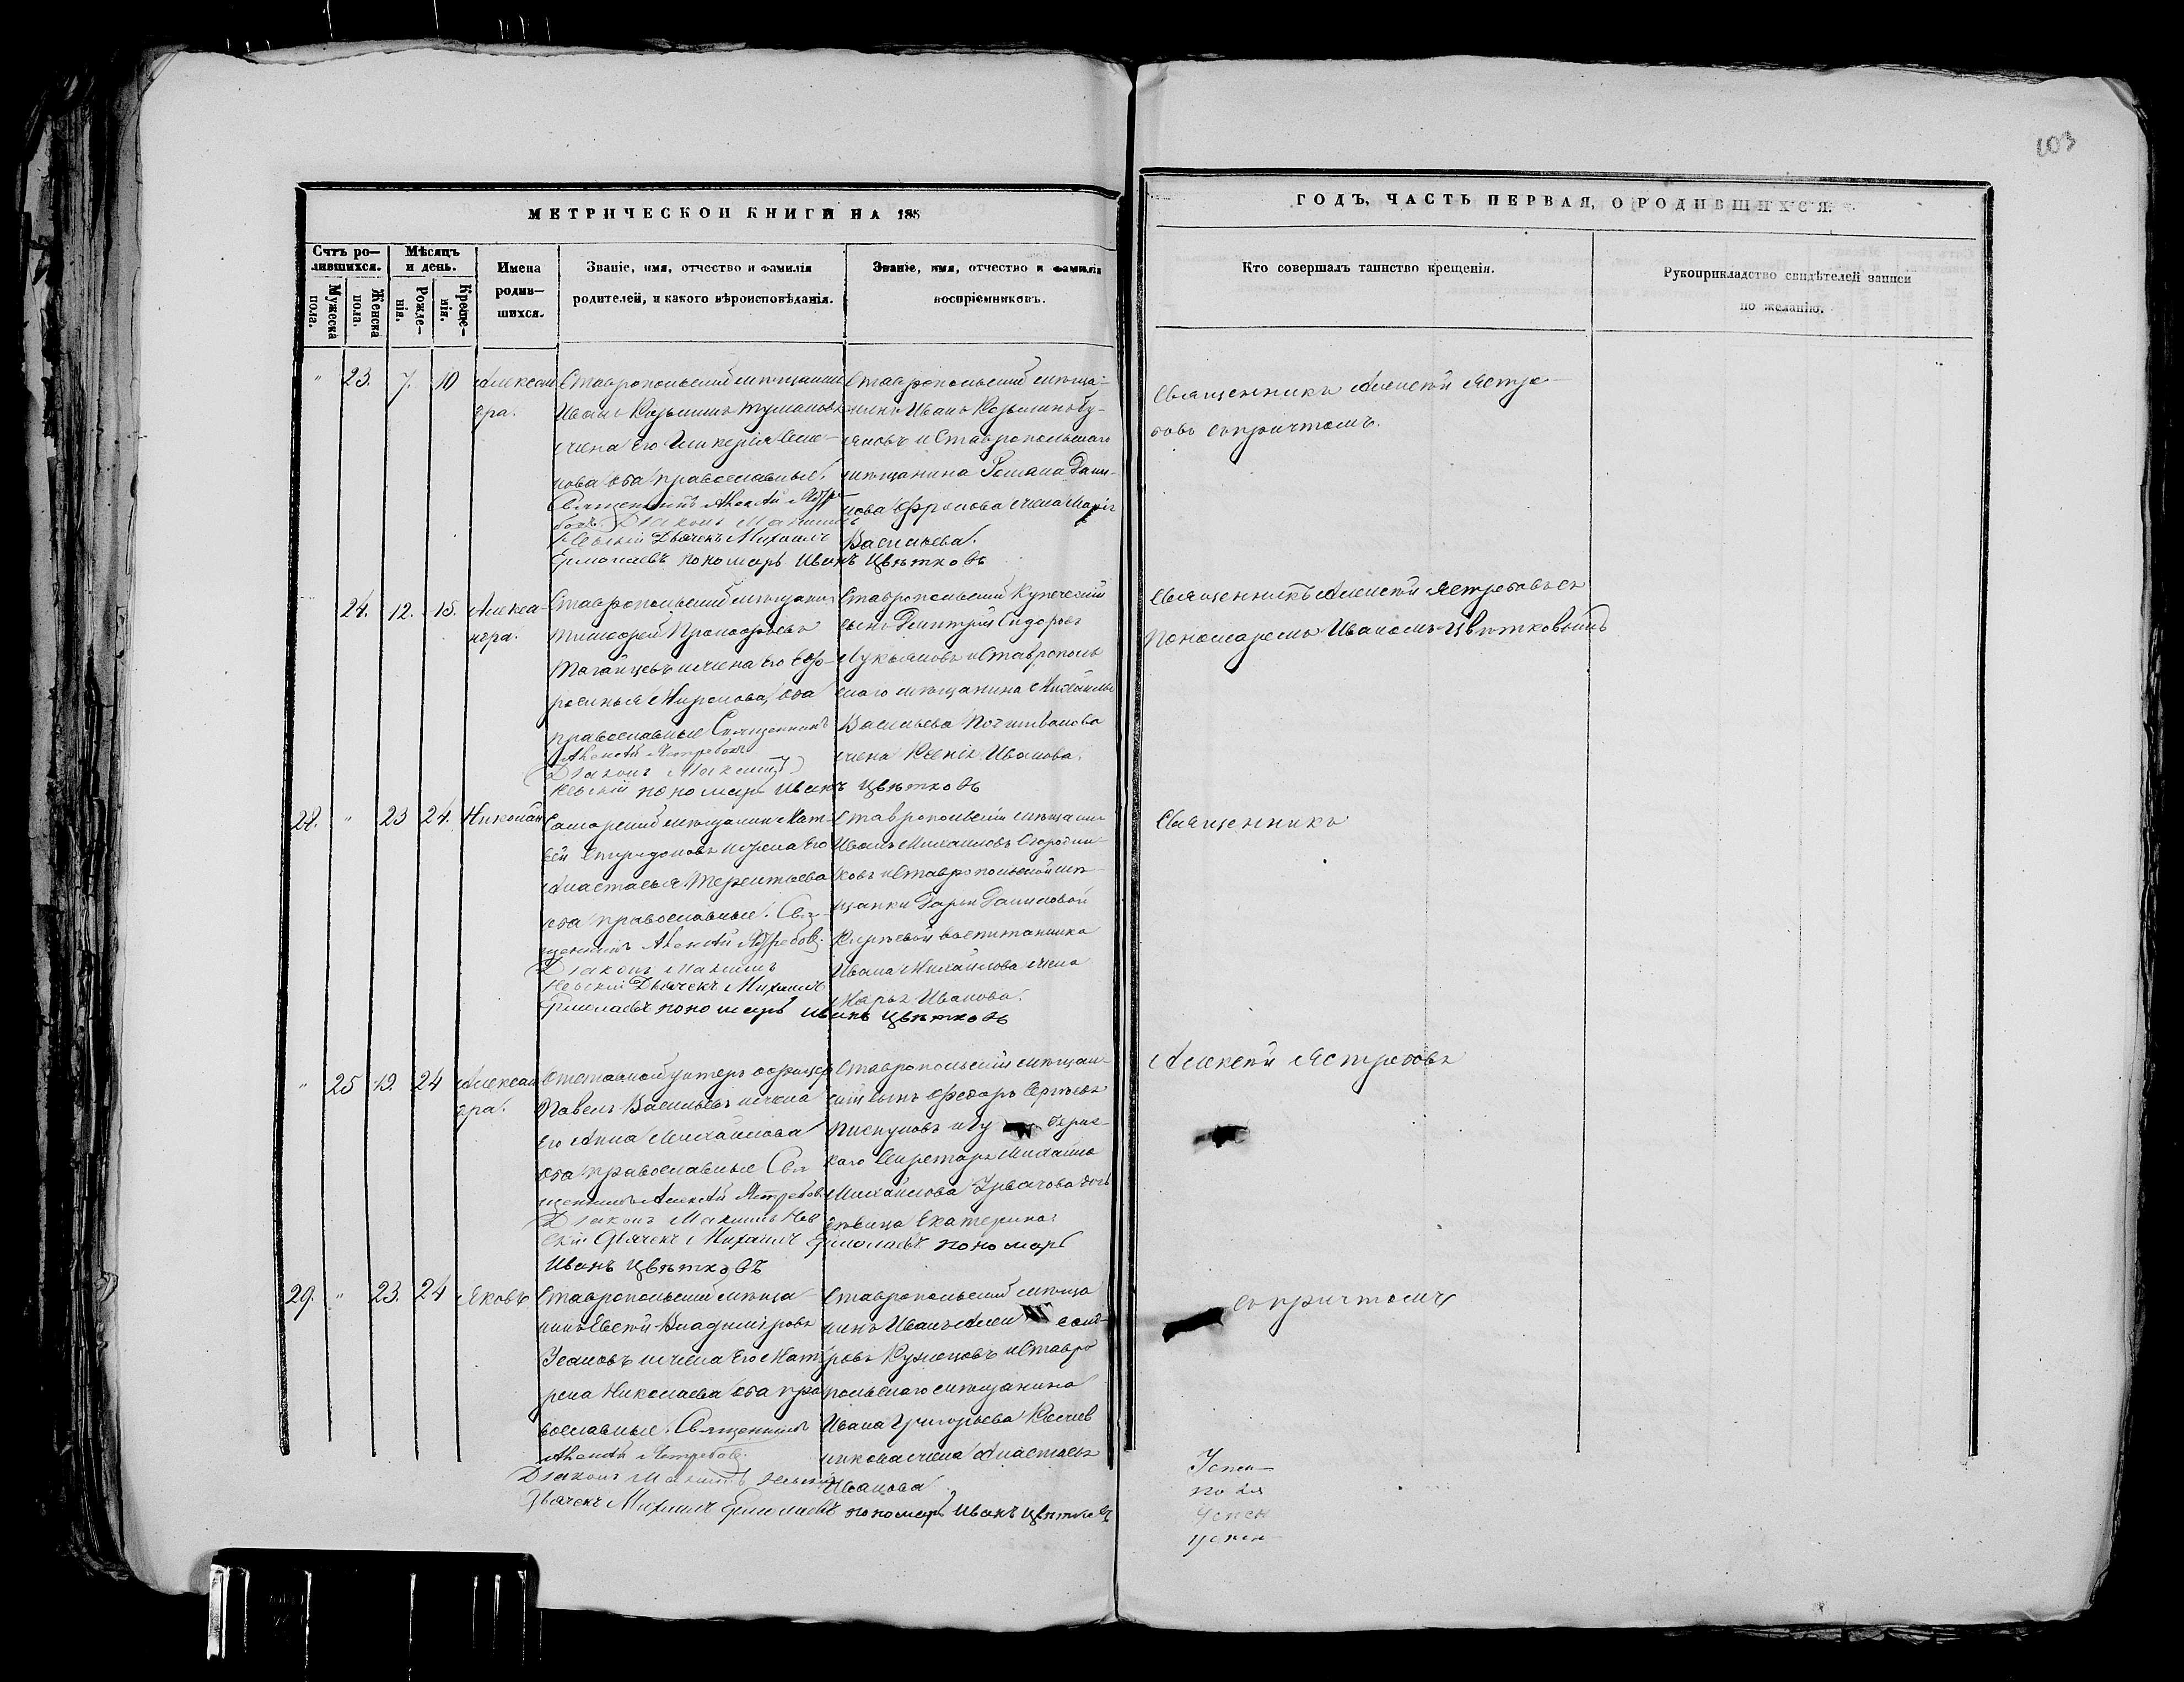 103
МЕТРИЧЕСКОЙ КНИГИ НА 185
ГОДЪ, ЧАСТЬ ПЕРВАЯ, О РОДИВШИХСЯ.
Счтъ ро-
дившихся.
Мужеска
пола.
Женска
пола.
Мѣсяцъ
и день.
Рожде-
нія.
Креще-
нія.
Имена
родив-
шихся.
Званіе, имя, отчество и фамилія
родителей, и какого вѣроисповѣданія.
Званіе, имя, отчество и фамилія
воспріемниковъ.
Кто совершалъ таинство крещенія.
Рукоприкладство свидѣтелей записи
по желанію.
" 23. 7. 10
Алексан
дра.
Ставропольскій мѣщанин
Иванъ Козьминъ Тумановъ
и жена его Гликерія Семе-
нова оба православные.
Священникъ Алексѣй Ястре-
бовъ. Діаконъ Максимъ
Невскій Дьячекъ Михаилъ
Ермолаевъ пономарь Иванъ Цвѣтковъ
Ставропольскій мѣща-
нинъ Иванъ Козьминъ Бу-
яновъ и Ставропольскаго
мѣщанина Романа Дани-
лова Фролова жена Марія
Васильева.
Священникъ Алексѣй Ястре-
бовъ съ причтомъ.
24. 12. 15.
Алекса-
ндра.
Ставропольскій мѣщанин
Тимофей Прокофьевъ
Тагайцевъ и жена его Евф-
росинья Миронова, оба
православные Священникъ
Алексѣй Ястребовъ
Діаконъ Максимъ
Невскій пономарь Иванъ Цвѣтковъ
Ставропольскій купеческій
сынъ Дмитрій Сидоровъ
Лукьяновъ и Ставрополь
скаго мѣщанина Михайлы
Васильева
жена Ксенія Иванова.
Священникъ Алексѣй Ястребовъ съ
Пономаремъ Иваномъ Цвѣтковымъ
28. " 23 24.
Николай
Самарскій мѣщанин Мат-
вѣй Спиридоновъ и жена его
Анастасья Терентьева
оба православные. Свя-
щенникъ Алексѣй Ястребовъ.
Діаконъ Максимъ
Невскій Дьячекъ Михаилъ
Ермолаевъ пономарь Иванъ Цвѣтковъ
Ставропольскій мѣщанин
Иванъ Михаиловъ
ковъ и Ставропольской мѣ-
щанки Дарьи Даниловой
воспитанника
Ивана Михайлова жена
Марья Иванова.
Священникъ
" 25 19. 24
Алексан
дра.
Отставной унтеръ офицер
Павелъ Васильевъ и жена
его Анна Михайлова
оба православные Свя
щенникъ Алексѣй Ястребовъ
Діаконъ Максимъ Нев
скій Дьячекъ Михаилъ Ермолаевъ пономарь
Иванъ Цвѣтковъ
Ставропольскій мѣщан-
скій сынъ Федоръ Сергѣевъ
Пискуновъ и Гу берис-
каго Секретаря Михаила
Михайлова дочь
дѣвица Екатерина
Алексѣй Ястребовъ
29. " 23. 24
Яковъ
Ставропольскій мѣща
нинъ Евсѣй Владиміровъ
Усановъ и жена его Мат
рена Николаева оба пра
вославные. Священникъ
Алексѣй Ястребовъ
Діаконъ Максимъ Невскій
Дьячекъ Михаилъ Ермолаевъ пономарь Иванъ Цвѣтковъ
Ставропольскій мѣща
нинъ Иванъ Алек санд-
ровъ Кузнецовъ и Ставро
польскаго мѣщанина
Ивана Григорьева
никова жена Анастасья
Иванова
съ причтомъ
Успен